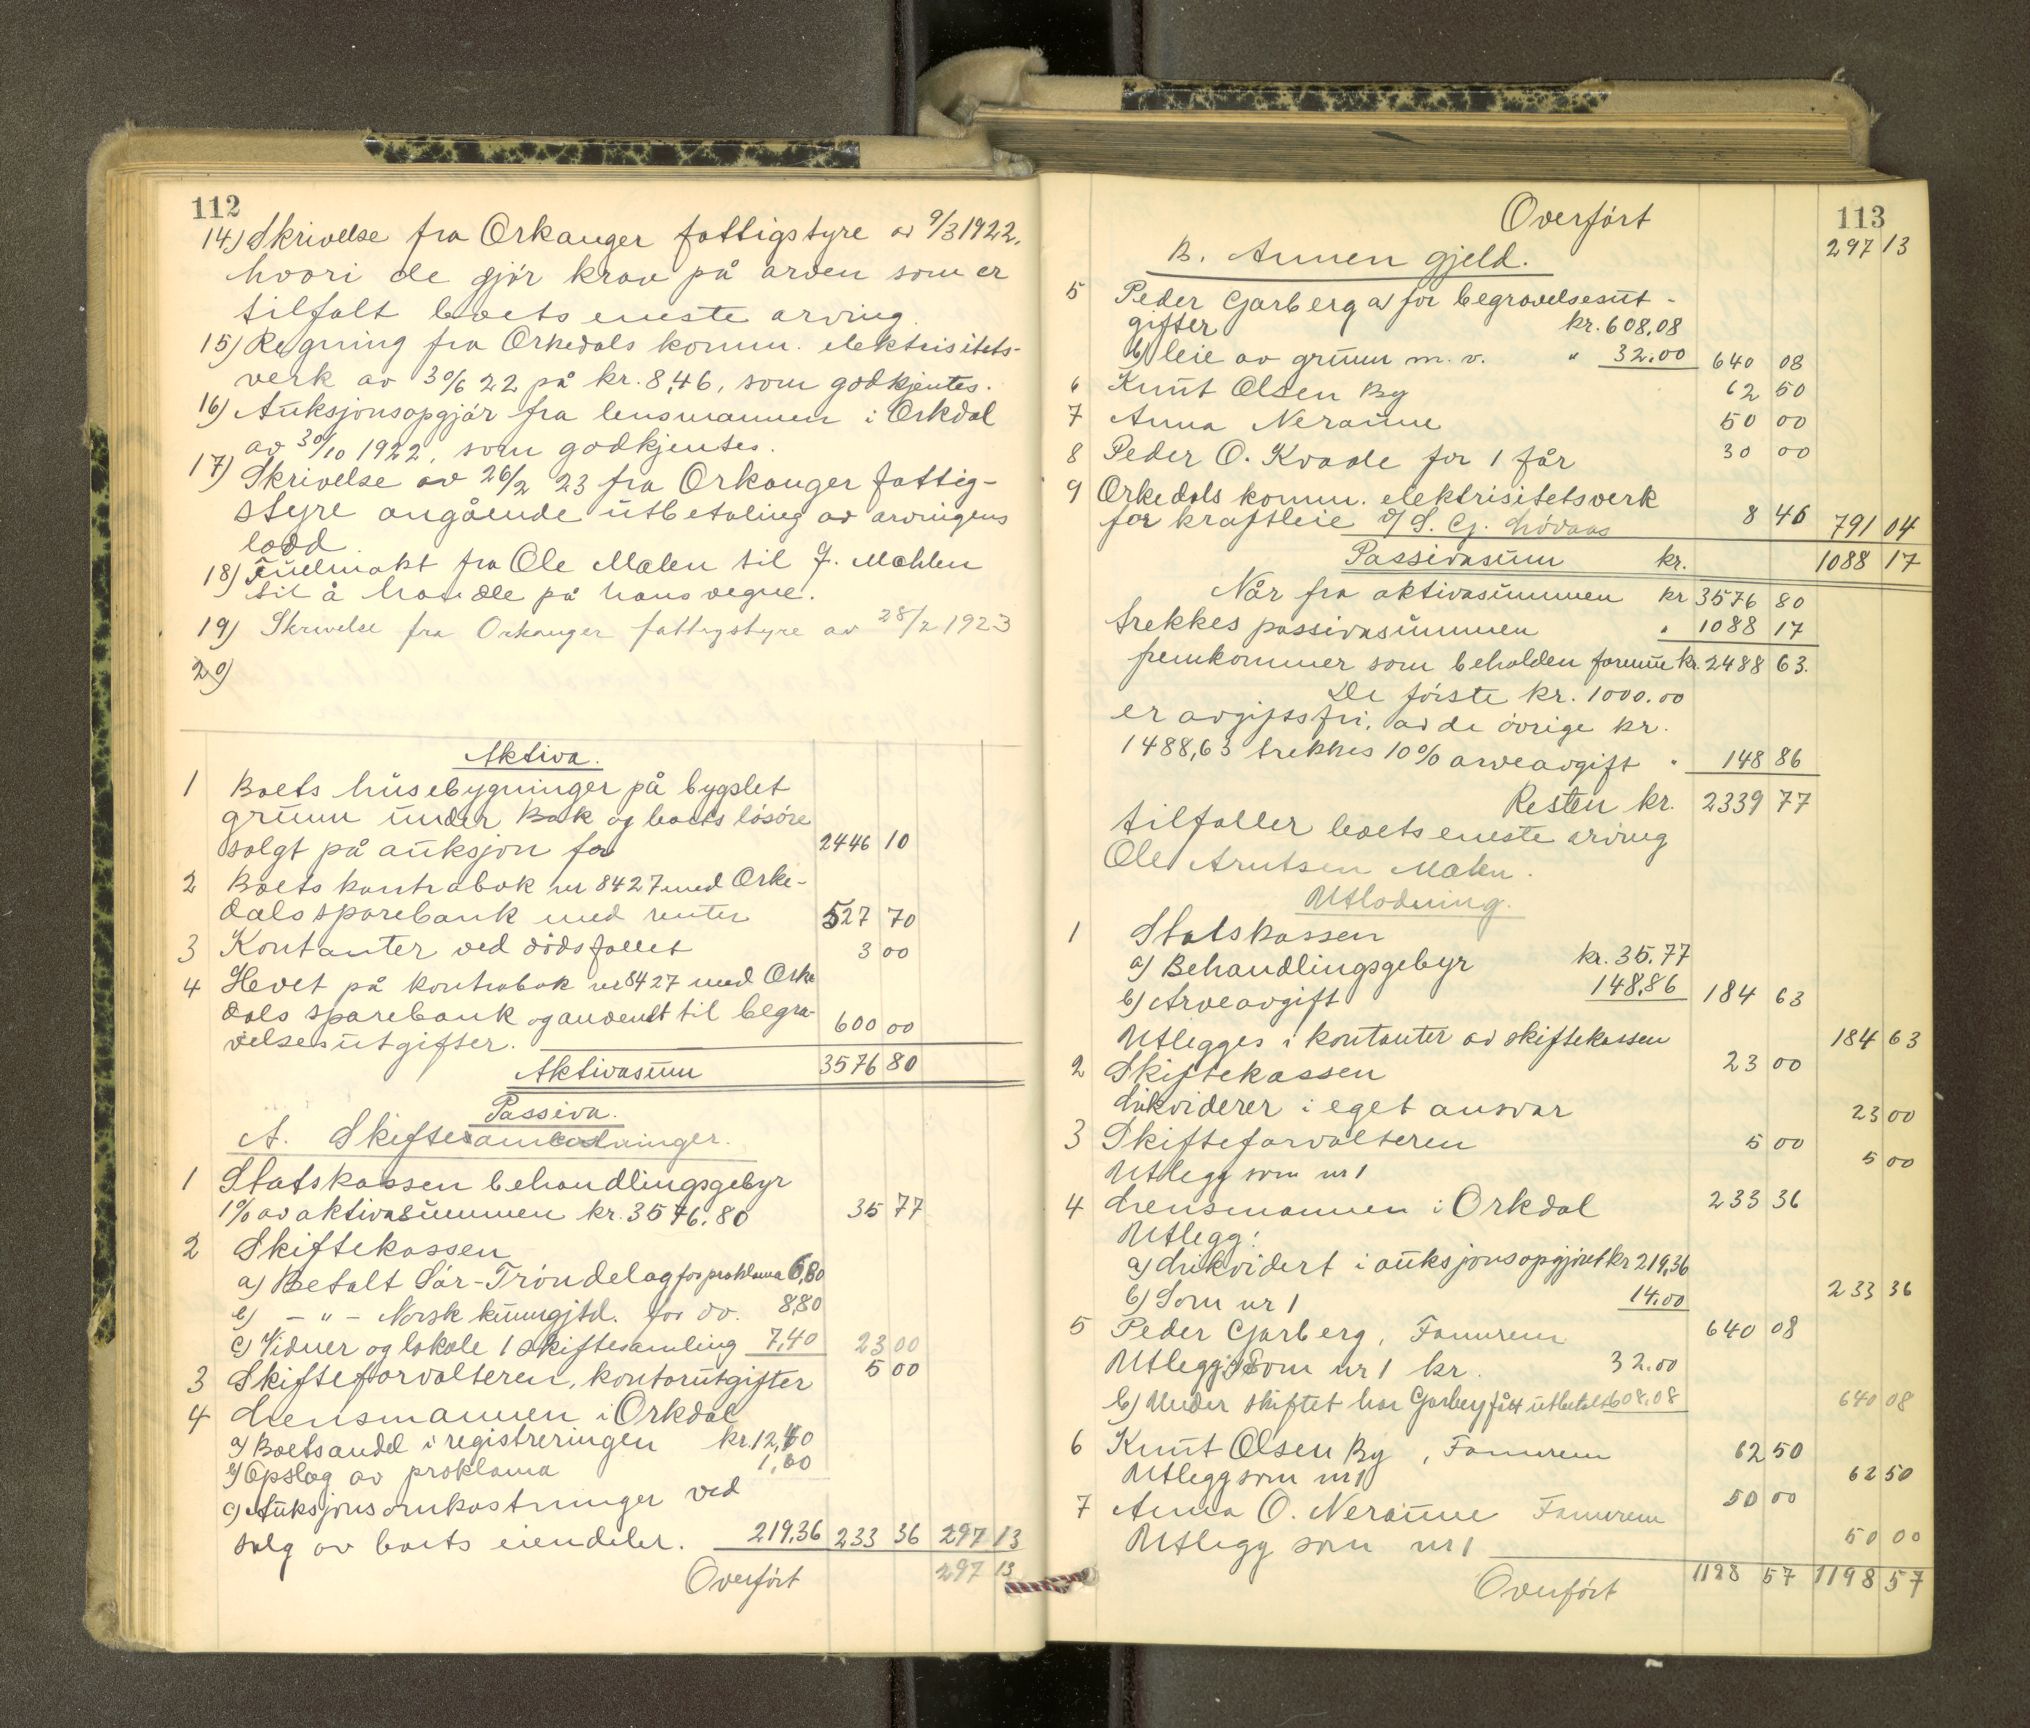 112
14) Skrivelse fra Orkanger fattigstyre av 9/3 1922,
hvori de gjør krav på arven som er
tilfalt boets eneste arving.
15) Regning fra Orkedals komm. elektrisitets-
verk av 30/6 22 på kr. 8,46, som godkjentes.
16) Auksjonsopgjør fra lensmannen i Orkdal
av 30/10 1922, som godkjentes.
17) Skrivelse av 26/2 23 fra Orkanger fattig-
styre angående utbetaling av arvingens
lodd
18) Fullmakt fra Ole Malen til J. Mahlen
til å handle på hans vegne.
19) Skrivelse fra Orkanger fattigstyre av 28/2 1923
20)
Aktiva.
1 Boets husebygninger på bygslet
grunn under Bak og boets løsøre
solgt på auksjon for 2446 10
2 Boets kontrabok nr 8427 med Orke-
dals sparebank med renter 527 70
3 Kontanter ved dødsfallet 3 00
4 Hevet på kontrabok nr 8427 med Orke
dals sparebank og anvendt til begra-
velsesutgifter. 600 00
Aktivasum 3576 80
Passiva.
A. Skifteomkostninger.
1 Statskassen behandlingsgebyr
1% av aktivasummen kr. 3576.80 35 77
2 Skiftekassen
a) Betalt Sør-Trøndelag for proklama 6,80
b) - " - Norsk kunngjtd. for do. 8,80
c) Vidner og lokale 1 skiftesamling 7,40 23 00
3 Skifteforvalteren, kontorutgifter 5 00
4 Lensmannen i Orkdal
a) Boets andel i registreringen kr. 12,40
b) Opslag av proklama 1,60
c) Auksjonsomkostninger ved
salg av boets eiendeler. 219,36 233 36 297 13
Overført 297 13
113
Overført 297 13
B. Annen gjeld.
5 Peder Garberg a) for begravelsesut-
gifter kr. 608,08
b) leie av grunn m. v. " 32.00 640 08
6 Knut Olsen By 62 50
7 Anna Neraune 50 00
8 Peder O. Kvaale for 1 får 30 00
9 Orkedals komm. elektrisitetsverk
for kraftleie v/ S. G. Løvaas 8 46 791 04
Passivasum kr. 1088 17
Når fra aktivasummen kr 3576 80
trekkes passivasummen " 1088 17
fremkommer som beholden formue kr. 2488 63.
De første kr. 1000.00
er avgiftsfri, av de øvrige kr.
1488,63 trekkes 10% arveavgift " 148 86
Resten kr. 2339 77
tilfaller boets eneste arving
Ole Arntsen Malen.
Utlodning.
1 Statskassen
a) Behandlingsgebyr kr. 35.77
b) Arveavgift 148,86 184 63
Utlegges i kontanter av skiftekassen 184 63
2 Skiftekassen 23 00
Likviderer i eget ansvar 23 00
3 Skifteforvalteren 5 00
Utlegg som nr 1 5 00
4 Lensmannen i Orkdal 233 36
Utlegg:
a) Likvidert i auksjonsopgjøret kr 219,36
b) Som nr 1 14.00 233 36
5 Peder Garberg, Fannrem 640 08
Utlegg: a) Som nr 1 kr. 32.00
b) Under skiftet har Garberg fått utbetalt 608,08 640 08
6 Knut Olsen By, Fannrem 62 50
Utlegg som nr 1 62 50
7 Anna O. Neraune Fannrem 50 00
Utlegg som nr 1 50 00
Overført 1198 57 1198 57